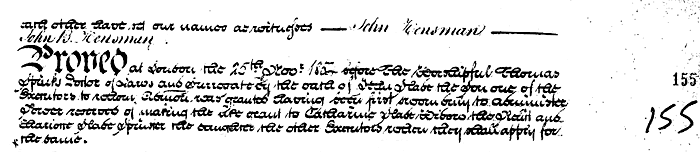 each other have set our names as witnesses — John Hensman —
John B. Hensman.
Proved at London the 25th Novr. 185 before the Worshipful Thomas
Spinks Doctor of Laws and Surrogate by the oath of John Slade the Son one of the
Executors to whom Admon was granted having been first sworn duly to administer
Power reserved of making the like Grant to Catharine Slade Widow the Relict and
Slade Spinster the daughter the other Executors when they shall apply for
the same.
155
155